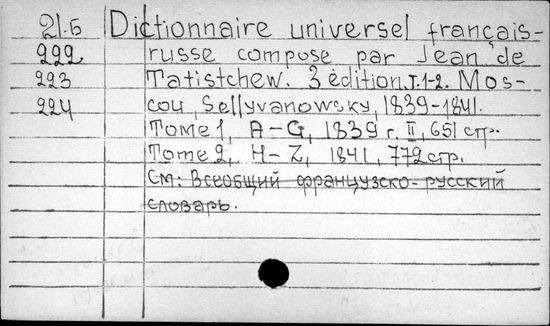 21.Б Dictionnaire universel français-
222 russe compose par Jean de
223 Tatistchew. 3 édition. T.1-2. Mos-
224 cou, Sellyvanowsky, 1839-1841.
Tome 1, A-G, 1839 г. II, 651 стр.
Tome 2, H-Z, 1841, 772 стр.
См: Всеобщий французско-русский
словарь.